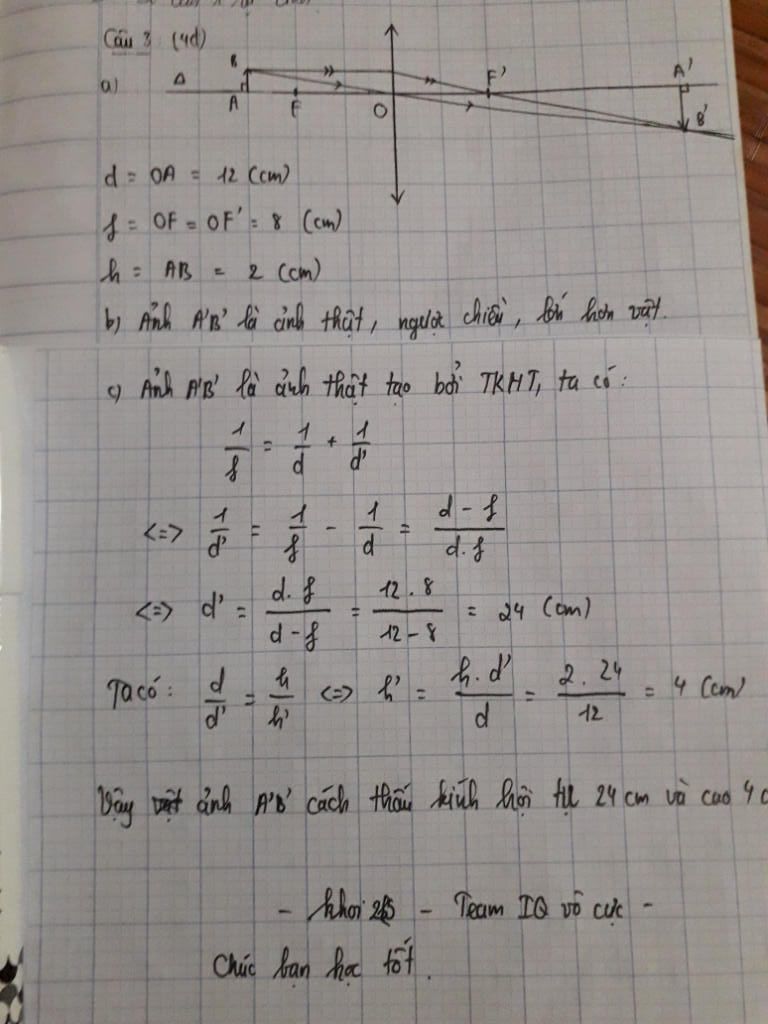 Câu 3 (4đ)
a) Δ B A F O F' A' B'
d = OA = 12 (cm)
f = OF = OF' = 8 (cm)
h = AB = 2 (cm)
b) Ảnh A'B' là ảnh thật, ngược chiều, lớn hơn vật.
c) Ảnh A'B' là ảnh thật tạo bởi TKHT, ta có:
1/f = 1/d + 1/d'
<=> 1/d' = 1/f - 1/d = (d - f)/(d.f)
<=> d' = (d.f)/(d - f) = (12.8)/(12 - 8) = 24 (cm)
Ta có: d/d' = h/h' <=> h' = (h.d')/d = (2.24)/12 = 4 (cm)
Vậy ảnh A'B' cách thấu kính hội tụ 24 cm và cao 4 c
- - Team IQ vô cực -
Chúc bạn học tốt.